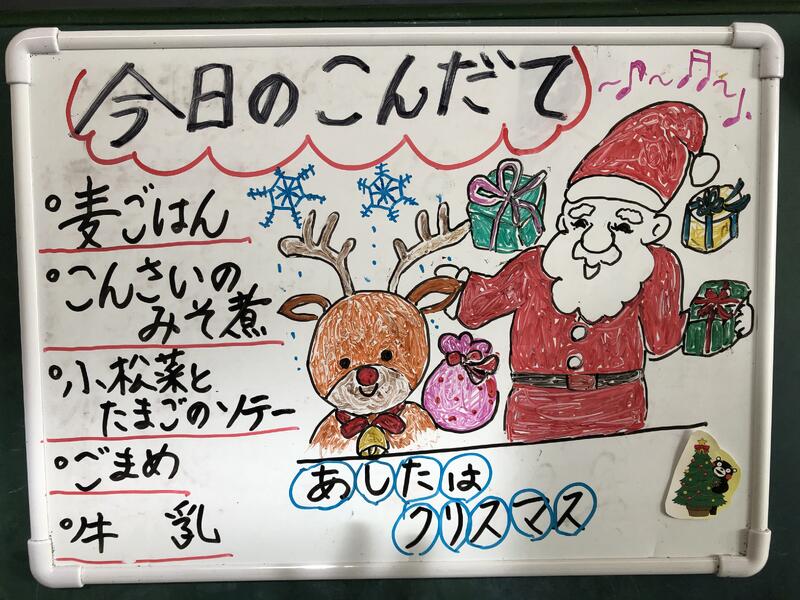 今日のこんだて
○麦ごはん
○こんさいの
みそ煮
○小松菜と
たまごのソテー
○ごまめ
○牛 乳
あしたは
クリスマス